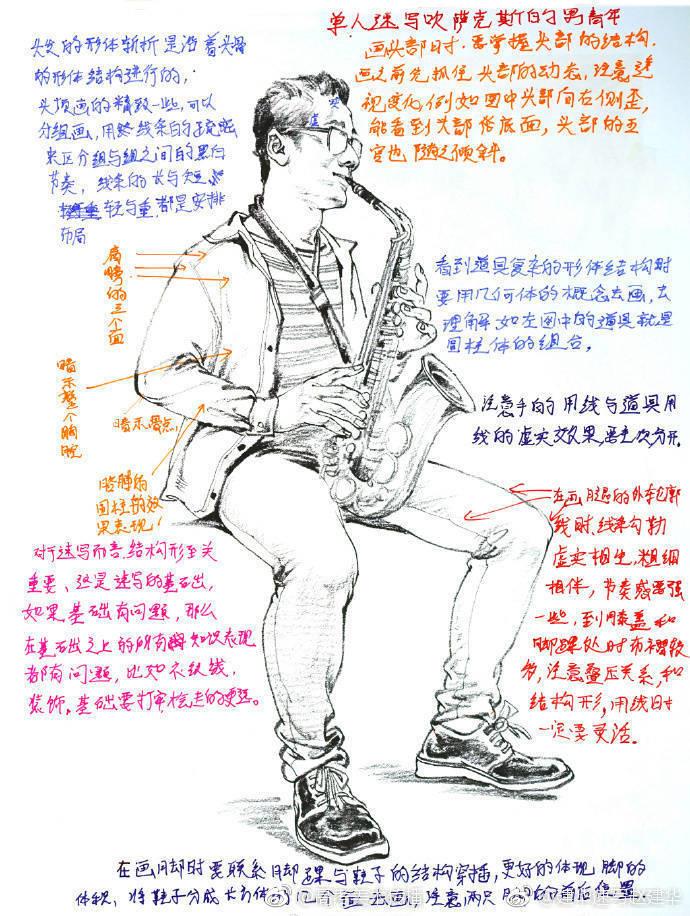 单人速写吹萨克斯的男青年
画头部时,要掌握头部的结构.
画之前先抓住头部的动态,注意透
视变化,例如图中头部向右侧歪,
能看到头部俗底面,头部的五
官也随之倾斜。
头发的形体转折是沿着头骨
的形体结构进行的,
头顶画的精致一些,可以
分组画,用线条的
来区分组与组之间的黑白
节奏,线条的长与短
轻与重都是安排
布局
肩膀的三个面
暗示整个胸腔
暗示骨点
胳膊的
圆柱的效
果表现!
看到道具复杂的形体结构时
要用几何体的概念去画,去
理解如左图中的道具就是
圆柱体的组合。
注意手的用线与道具用
线的虚实效果,主次分开.
在画腿的外轮廓
线时,线条勾勒
虚实相生,粗细
相伴,节奏感要强
一些,到膝盖和
脚踝处时布褶较
多,注意叠压关系,和
结构形,用线时
一定要灵活.
对于速写而言,结构形至关
重要、这是速写的基础,
如果基础有问题,那么
在基础之上的所有知识表现
都有问题,比如衣纹线.
装饰.基础要打牢桧走的更远。
在画脚时要联系脚踝与鞋子的结构穿插,更好的体现脚的
体积,将鞋子分成长方体的 面去画,注意两只脚的前后位置